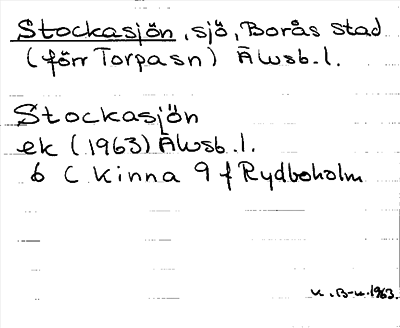 Stockasjön, sjö, Borås stad
(förr Torpasn) Älvsb. l.
Stockasjön
ek (1963) Älvsb. l.
6 C Kinna 9 f Rydboholm
K. B-u. 1963.